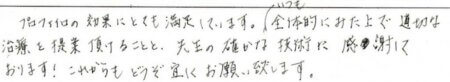 プロファイロの効果にとても満足しています。いつも全体的にみた上で適切な
治療を提案頂けることと、先生の確かな技術に感謝して
おります！これからもどうぞ宜しくお願い致します。